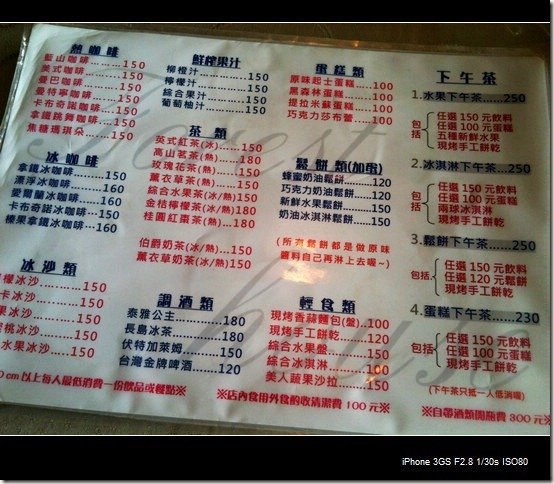 熱咖啡
藍山咖啡......150
美式咖啡......150
曼巴咖啡......150
曼特寧咖啡...150
卡布奇諾咖啡...150
拿鐵跳舞咖啡...150
焦糖瑪琪朵...150
冰咖啡
拿鐵冰咖啡......150
漂浮冰咖啡......160
愛爾蘭冰咖啡...160
卡布奇諾冰咖啡...150
榛果拿鐵冰咖啡...160
冰沙類
檬冰沙......150
卡冰沙......150
果冰沙......150
桃冰沙......150
水果冰沙...150
鮮榨果汁
柳橙汁......150
檸檬汁......150
綜合果汁......150
葡萄柚汁......150
茶類
英式紅茶(冰)...150
高山茗茶(熱)......180
玫瑰花茶(熱)......150
薰衣草茶(熱)......150
綜合水果茶(冰/熱)150
金桔檸檬茶(冰/熱)180
桂圓紅棗茶(熱)...180
伯爵奶茶(冰/熱)...150
薰衣草奶茶(冰/熱)150
調酒類
泰雅公主......180
長島冰茶......180
伏特加萊姆......150
台灣金牌啤酒......120
蛋糕類
原味起士蛋糕...100
黑森林蛋糕......100
提拉米蘇蛋糕...100
巧克力莎布蕾...100
鬆餅類(加蛋)
蜂蜜奶油鬆餅......120
巧克力奶油鬆餅...120
新鮮水果鬆餅......150
奶油冰淇淋鬆餅...120
(所有鬆餅都是做原味
醬料自己再淋上去喔~)
輕食類
現烤香蒜麵包(盤)...100
現烤手工餅乾......120
綜合水果盤......150
綜合冰淇淋......100
美人蔬果沙拉...150
下午茶
1.水果下午茶......250
包括
任選 150 元飲料
任選 100 元蛋糕
五種新鮮水果
現烤手工餅乾
2.冰淇淋下午茶...250
包括
任選 150 元飲料
任選 100 元蛋糕
兩球冰淇淋
現烤手工餅乾
3.鬆餅下午茶...250
包括
任選 150 元飲料
任選 120 元鬆餅
現烤手工餅乾
4.蛋糕下午茶...230
包括
任選 150 元飲料
任選 100 元蛋糕
現烤手工餅乾
(下午茶只抵一人低消喔)
0 cm 以上每人最低消費一份飲品或餐點※
※店內食用外食酌收清潔費 100 元※
※自帶酒類開瓶費 300 元※
iPhone 3GS F2.8 1/30s ISO80